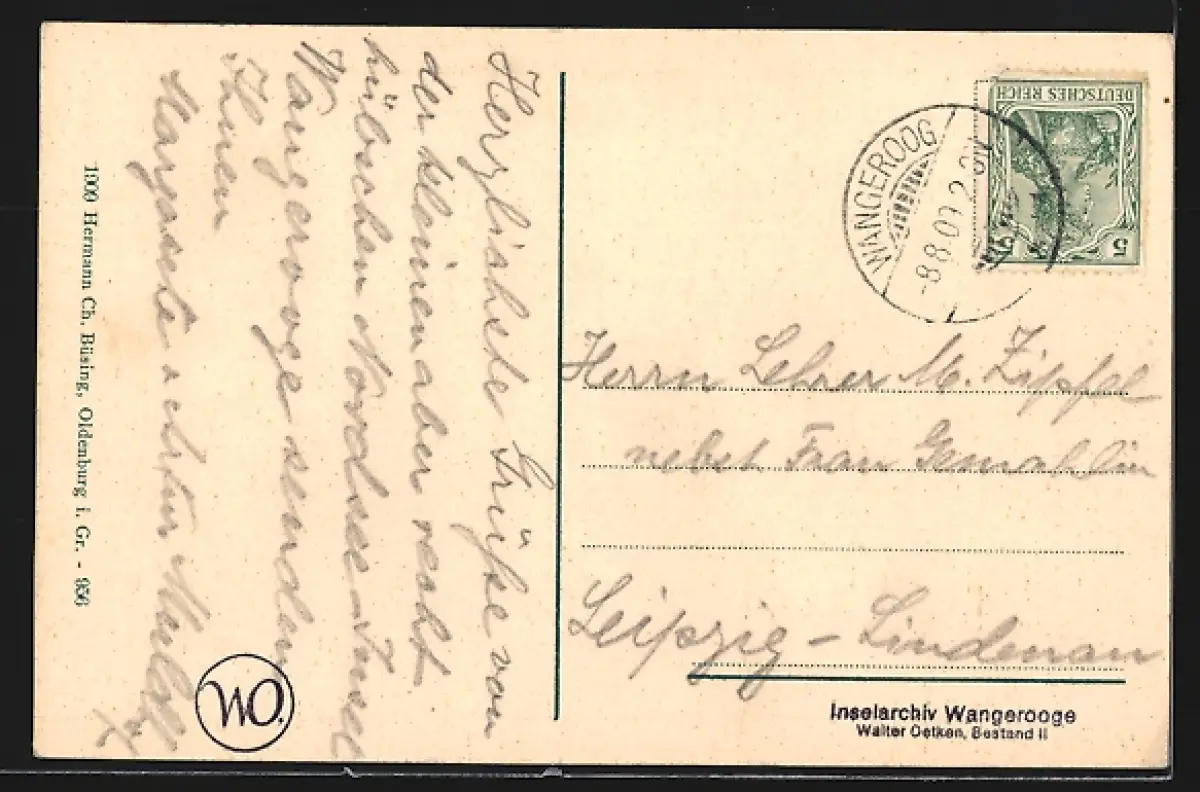 Herzlichste Grüße von
der kleinen aber recht
hübschen Nordsee-Insel
Wangerooge senden
Ihnen
Margarete u. Artur
1909 Hermann Ch. Büsing, Oldenburg i. Gr. - 956
WO.
DEUTSCHES REICH
5 5
WANGEROOG
-8.8.09.2-3N
Herrn Lehrer M. Zipfel
nebst Frau Gemahlin
Leipzig - Lindenau
Inselarchiv Wangerooge
Walter Oetken, Bestand II